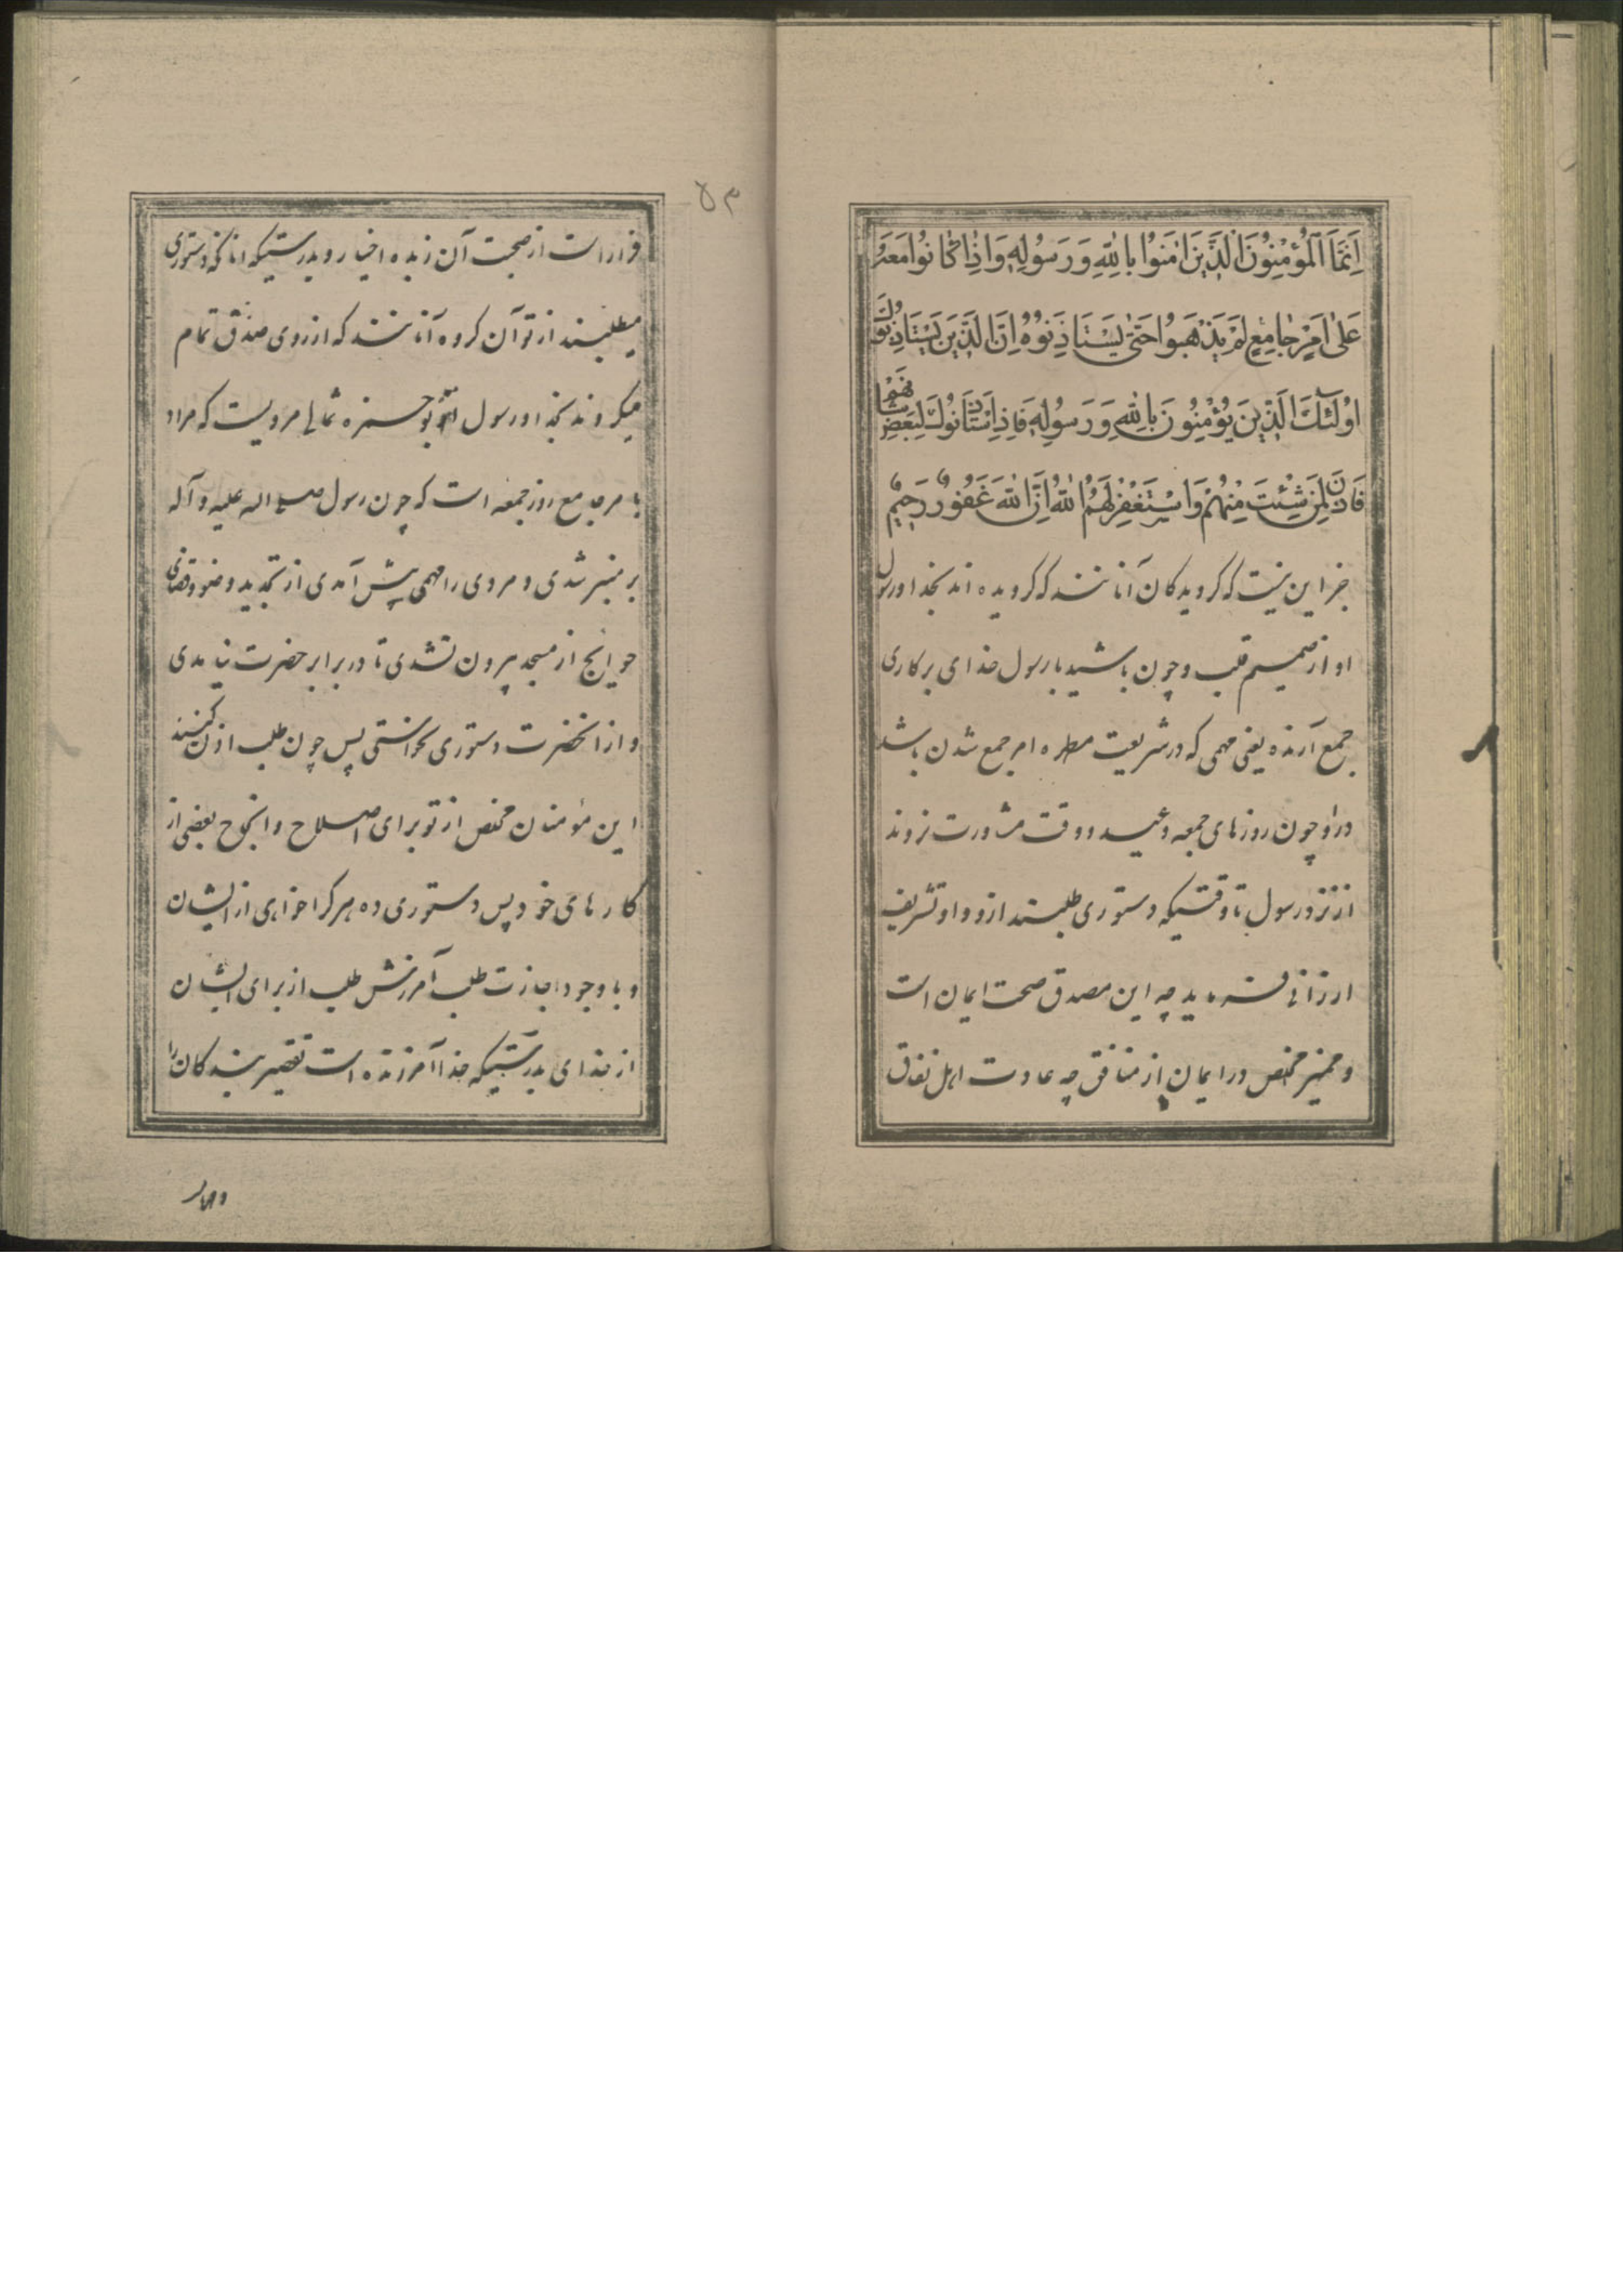 اِنَّمَا الْمُؤْمِنُونَ الَّذِینَ اٰمَنُوا بِاللّٰهِ وَ رَسُولِهِ وَ اِذٰا کٰانُوا مَعَهُ
عَلیٰ اَمْرٍ جٰامِعٍ لَمْ یَذْهَبُوا حَتّیٰ یَسْتَاذِنُوهُ اِنَّ الَّذِینَ یَسْتَاذِنُونَكَ
اُولٰئِكَ الَّذِینَ یُؤْمِنُونَ بِاللّٰهِ وَ رَسُولِهِ فَاِذَا اسْتَاذَنُوكَ لِبَعْضِ شَانِهِمْ
فَاذَنْ لِمَنْ شِئْتَ مِنْهُمْ وَ اسْتَغْفِرْ لَهُمُ اللّٰهَ اِنَّ اللّٰهَ غَفُورٌ رَحِیمٌ
جز این نیست که کرویدکان آنانند که کرویده اند بخدا و رسول
او از صمیم قلب و چون باشید با رسول خدای بر کاری
جمع آرنده یعنی مهمی که در شریعت مطهره امر جمع شدن باشد
در او چون روزهای جمعه و عید و وقت مشاورت نروند
از نزد رسول تا وقتیکه دستوری طلبند ازو و او تشریف
ارزانی فرماید چه این مصدق صحت ایمان است
و ممیز مخلص در ایمان از منافق چه عادت اهل نفاق
۵۳
فرار است از صحبت آن زبده اخیار و بدرستیکه انانکه دستوری
میطلبند از تو آن کروه آنانند که از روی صدق تمام
میکروند بخدا و رسول ابو حمزه ثمالی مرویست که مراد
بامر جامع روز جمعه است که چون رسول صلی الله علیه و آله
بر منبر شدی و مردی را مهمی پیش آمدی از تجدید وضو و قضای
حوایج از مسجد بیرون نشدی تا در برابر حضرت نیامدی
و از انحضرت دستوری نخواستی پس چون طلب اذن کنند
این مؤمنان مخلص از تو برای اصلاح و انجاح بعضی از
کارهای خود پس دستوری ده هر کرا خواهی از ایشان
و با وجود اجازت طلب آمرزش طلب از برای ایشان
از خدای بدرستیکه خدا آمرزنده است تقصیر بندکان را